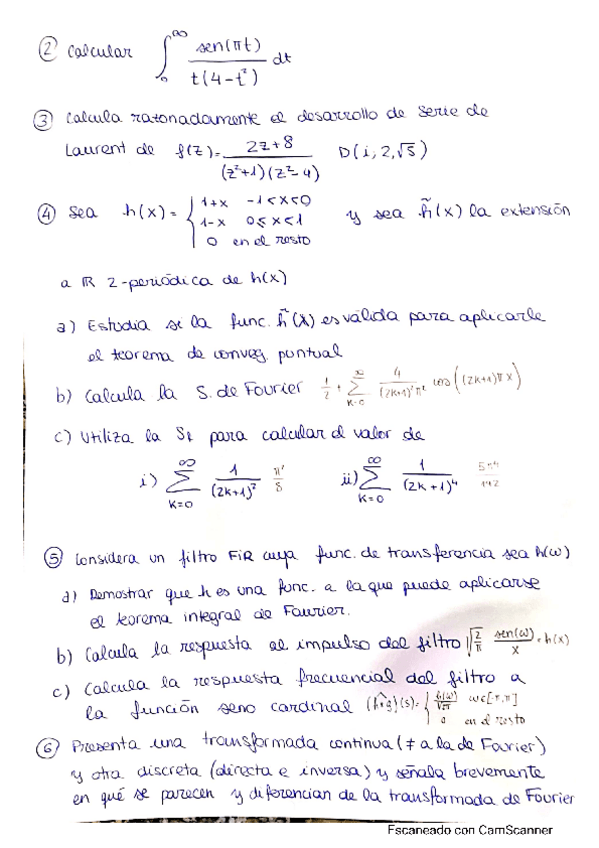 ② Calcular ∫₀^∞ sen(πt) / t(4-t²) dt
③ Calcula razonadamente el desarrollo de serie de
Laurent de f(z)= 2z+8 / (z²+1)(z²-4) D(i,2,√5)
④ Sea h(x) = { 1+x -1<x<0
1-x 0≤x<1
0 en el resto
y sea h̃(x) la extensión
a ℝ 2-periódica de h(x)
a) Estudia si la func. h̃(x) es válida para aplicarle
el teorema de converg. puntual
b) Calcula la S. de Fourier 1/2 + ∑_{k=0}^∞ 4/(2k+1)²π² cos((2k+1)πx)
c) Utiliza la Sf para calcular el valor de
i) ∑_{k=0}^∞ 1/(2k+1)² π²/8 ii) ∑_{k=0}^∞ 1/(2k+1)⁴
⑤ Considera un filtro FIR cuya func. de transferencia sea h(ω)
a) Demostrar que h es una func. a la que puede aplicarse
el teorema integral de Fourier.
b) Calcula la respuesta al impulso del filtro √(2/π) sen(ω)/x = h(x)
c) Calcula la respuesta frecuencial del filtro a
la función seno cardinal (h*g)(s) = { h(ω)/√2π ω∈[-π,π]
0 en el resto
⑥ Presenta una transformada continua (≠ a la de Fourier)
y otra discreta (directa e inversa) y señala brevemente
en qué se parecen y diferencian de la transformada de Fourier
Escaneado con CamScanner